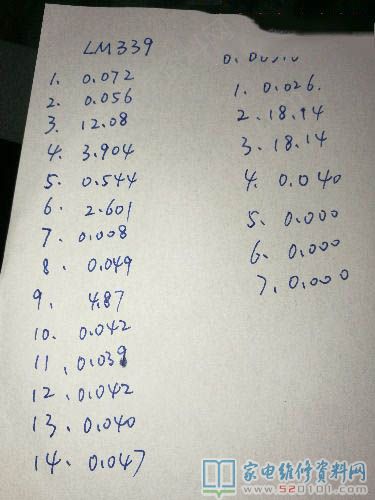 LM339
1. 0.072
2. 0.056
3. 12.08
4. 3.904
5. 0.544
6. 2.601
7. 0.008
8. 0.049
9. 4.87
10. 0.042
11. 0.039
12. 0.042
13. 0.040
14. 0.047
1. 0.026.
2. 18.14
3. 18.14
4. 0.040
5. 0.000
6. 0.000
7. 0.000
家电维修资料网
www.520101.com